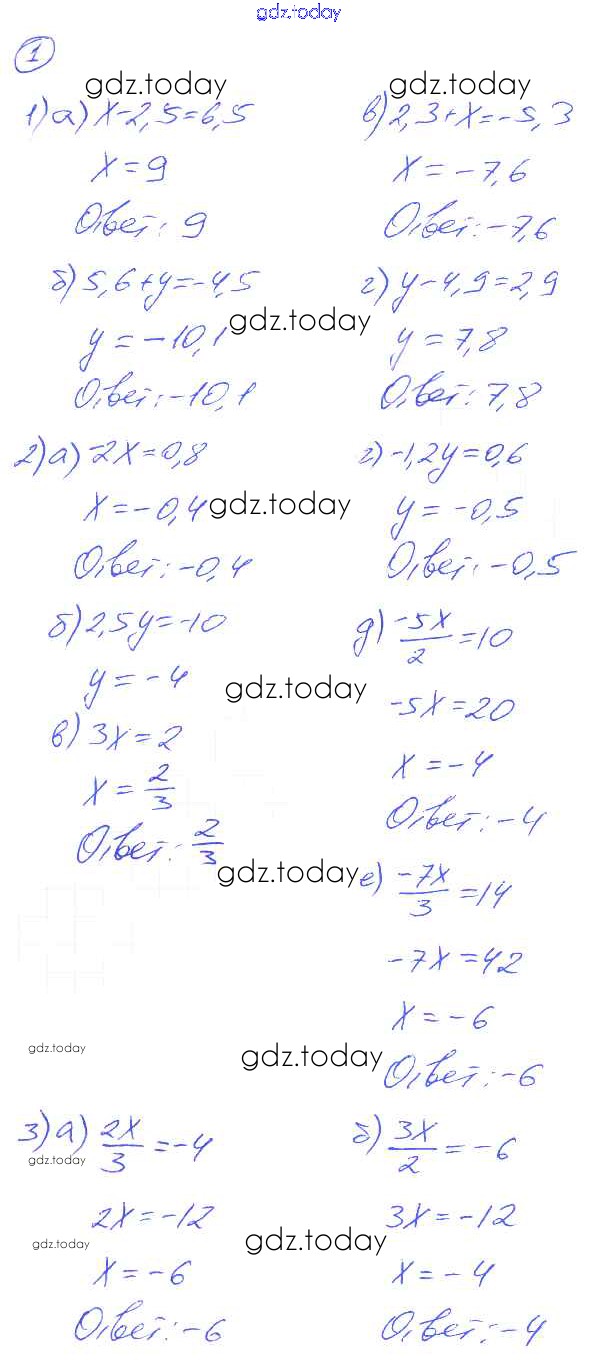 gdz.today
1
gdz.today gdz.today
1) а) x-2,5=6,5
x=9
Ответ: 9
б) 5,6+y=-4,5
gdz.today
y=-10,1
Ответ: -10,1
в) 2,3+x=-5,3
x=-7,6
Ответ: -7,6
г) y-4,9=2,9
y=7,8
Ответ: 7,8
2) а) -2x=0,8
x=-0,4
gdz.today
Ответ: -0,4
б) 2,5y=-10
y=-4
gdz.today
в) 3x=2
x=2/3
Ответ: 2/3
г) -1,2y=0,6
y=-0,5
Ответ: -0,5
д) -5x/2=10
-5x=20
x=-4
Ответ: -4
gdz.today
е) -7x/3=14
-7x=42
x=-6
gdz.today gdz.today
Ответ: -6
3) а) 2x/3=-4
gdz.today
2x=-12
gdz.today gdz.today
x=-6
Ответ: -6
б) 3x/2=-6
3x=-12
x=-4
Ответ: -4